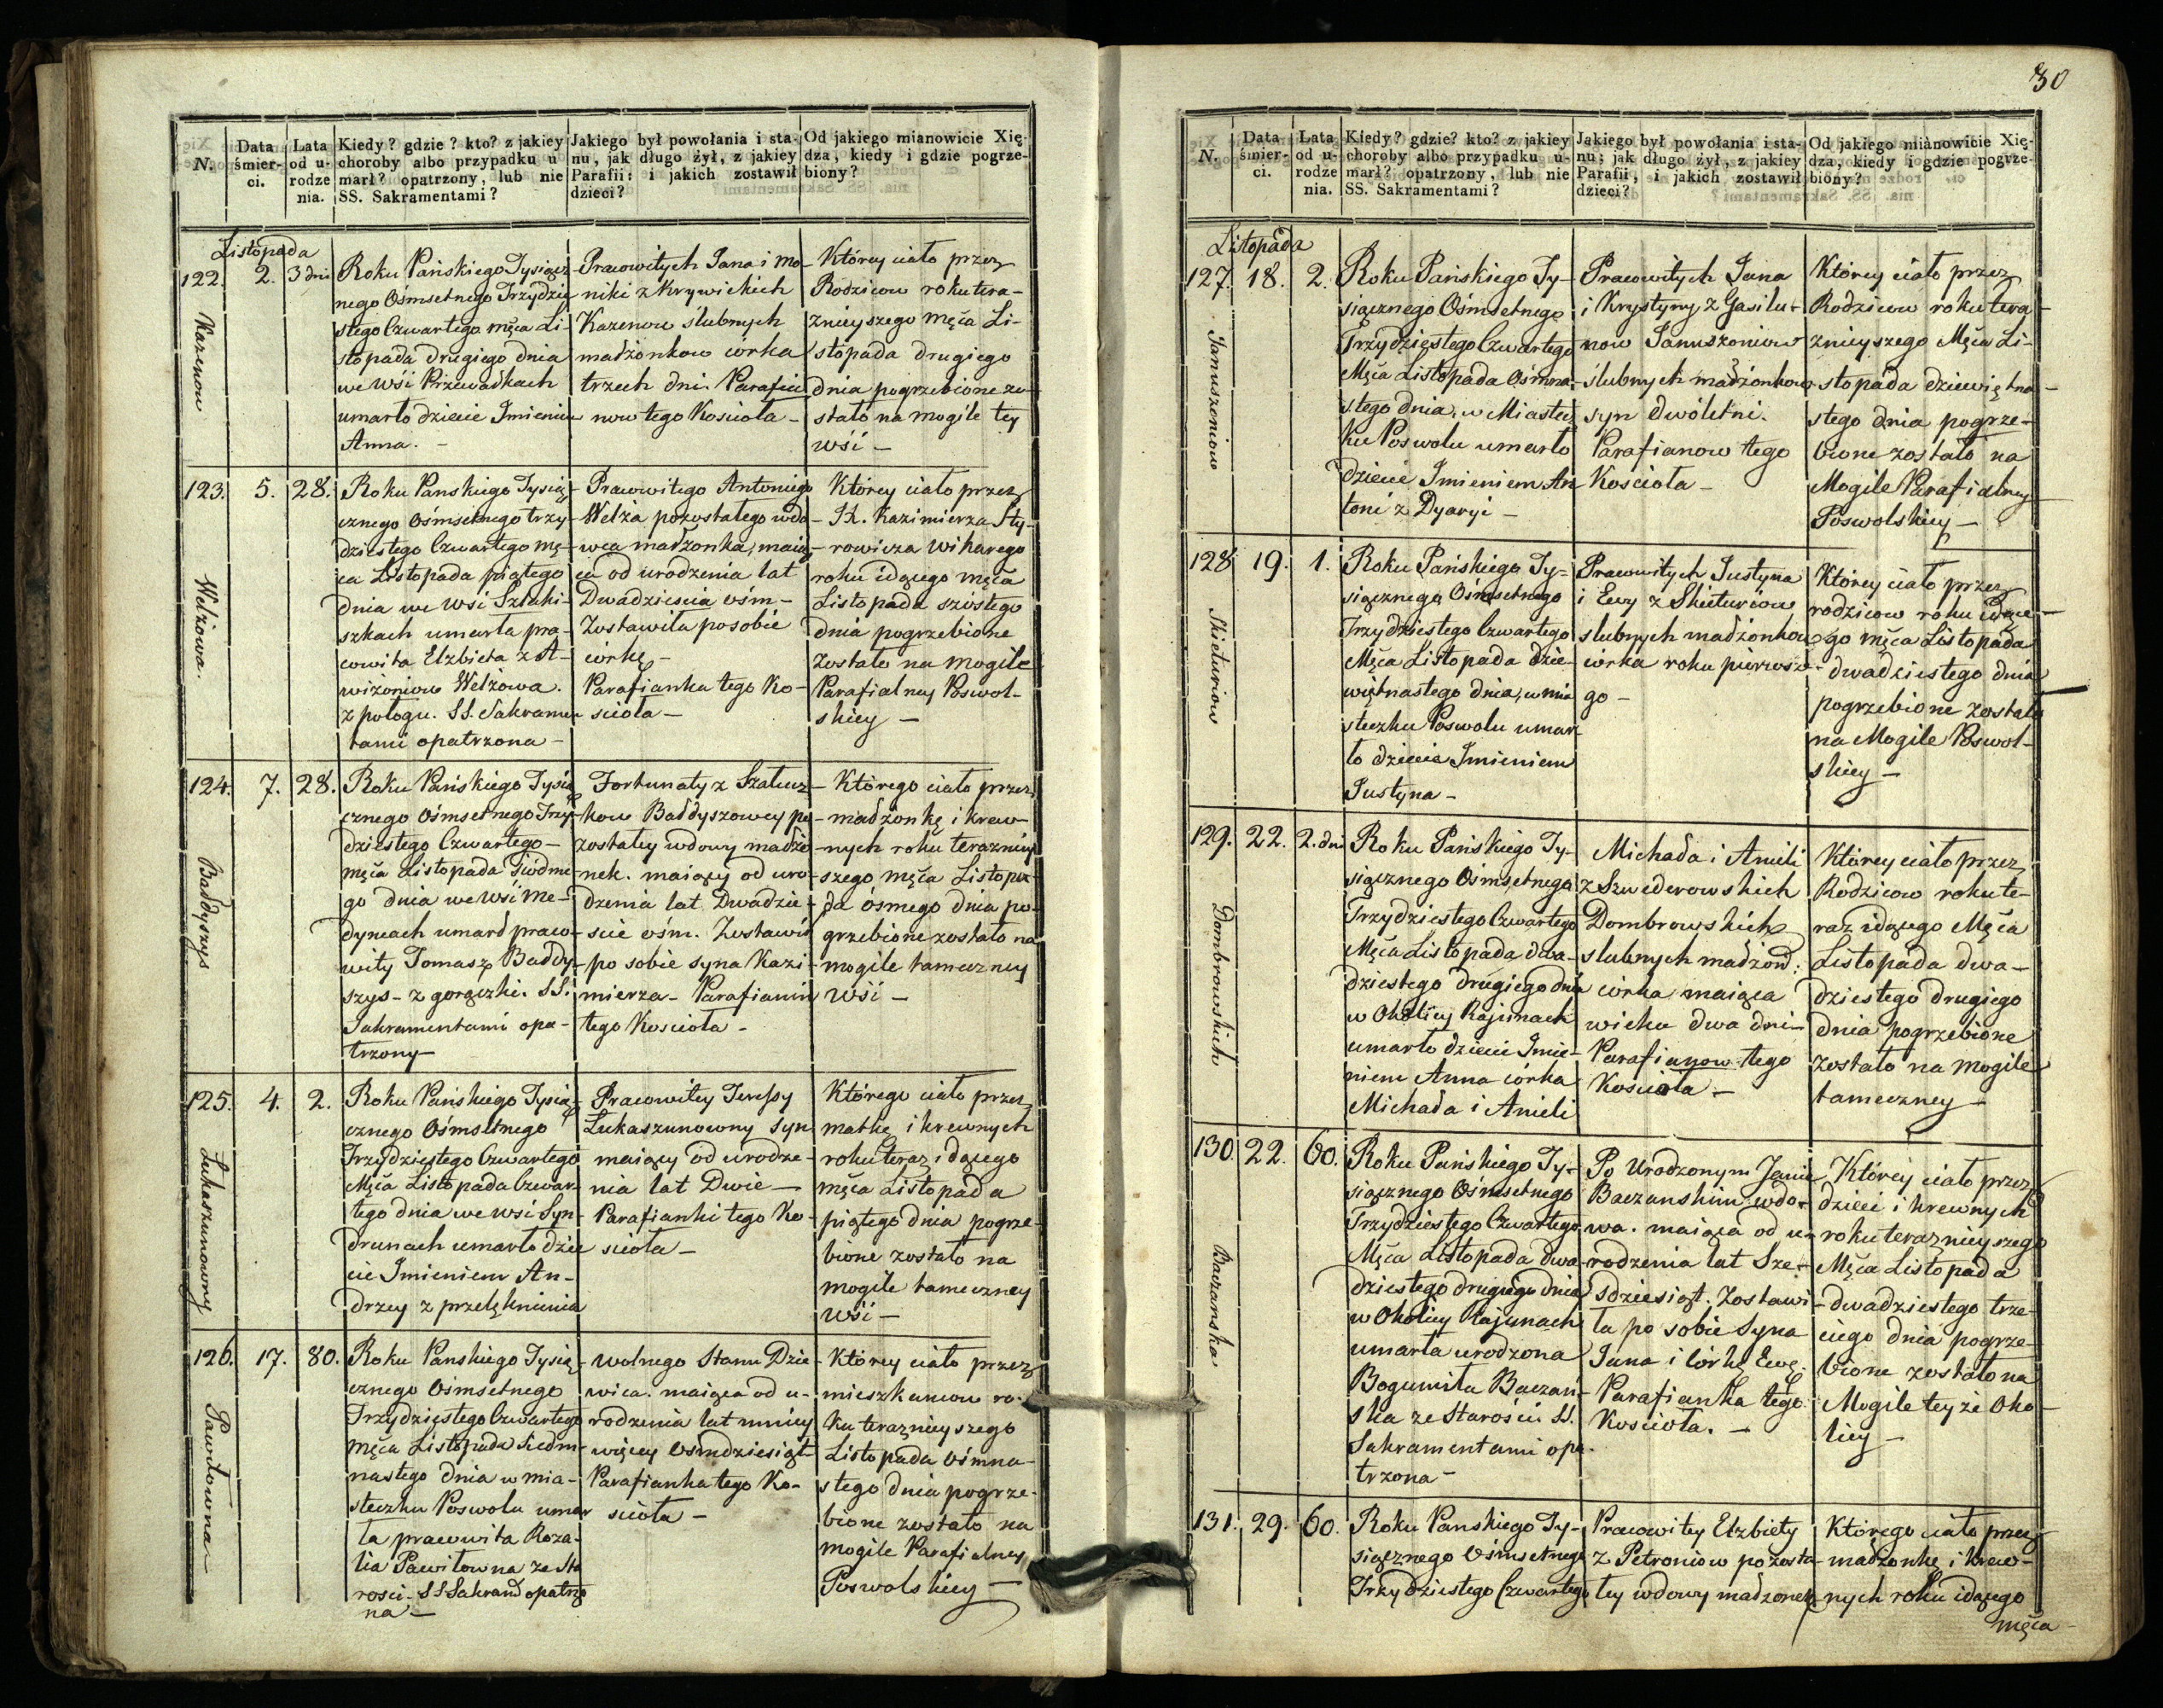 N.
Data śmier-
ci.
Lata
od u-
rodze
nia.
Kiedy? gdzie? kto? z jakiey
choroby albo przypadku u
marł? opatrzony, lub nie
SS. Sakramentami?
Jakiego był powołania i sta-
nu, jak długo żył, z jakiey
Parafii: i jakich zostawił
dzieci?
Od jakiego mianowicie Xię-
dza, kiedy i gdzie pogrze-
biony?
Listopada
122. 2. 3 dni
Kazenow
Roku Pańskiego Tysiącz
nego Ośmsetnego Trzydzie
stego Czwartego męca Li-
stopada drugiego dnia
we Wśi Przewadkach
umarło dziecie Imieniem
Anna. -
Pracowitych Jana i Mo-
niki z Krywickich
Kazenow ślubnych
małżonkow córka
trzech dni. Parafia
now tego Kościoła -
Którey ciało przez
Rodzicow roku tera-
znieyszego Męca Li-
stopada drugiego
dnia pogrzebione zo-
stało na mogile tey
wśi -
123. 5. 28.
Welżowa.
Roku Panskiego Tysią-
cznego Ośmsetnego trzy-
dziestego Czwartego mę-
ca Listopada piątego
dnia we wsi Szłaki-
szkach umarła pra-
cowita Elzbieta z A-
wiżoniow Welżowa.
z pologu. SS. Sakramen
tami opatrzona -
Pracowitego Antoniego
Welża pozostałego wdo-
wca małżonka, maią-
ca od urodzenia lat
Dwadziescia ośm -
Zostawiła po sobie
córkę -
Parafianka tego Ko-
scioła -
Którey ciało przez
Ik. Kazimierza Sty-
rowicza Wikarego
roku idącego męca
Listopada szóstego
dnia pogrzebione
zostało na mogile
Parafialney Poswol-
skiey -
124. 7. 28.
Bałdyszys
Roku Pańskiego Tysią
cznego Ośmsetnego Trzy-
dziestego Czwartego -
męca Listopada siódme
go dnia we wśi Me-
dyneach umarł praco-
wity Tomasz Bałdy-
szys - z gorączki. SS.
Sakramentami opa-
trzony -
Fortunaty z Szatucz
kow Bałdyszowey po-
zostałey wdowy małżo-
nek. maiący od uro-
dzenia lat Dwadzie-
ście ośm. Zostawił
po sobie syna Kazi-
mierza - Parafianin
tego Kościoła -
Którego ciało przez
małżonkę i krew-
nych roku teraznie
szego męca Listopa-
da ósmego dnia po-
grzebione zostało na
mogile tameczney
Wśi -
125. 4. 2.
Łukaszunowny
Roku Pańskiego Tysią-
cznego Ośmsetnego
Trzydziestego Czwartego
Męca Listopada Czwar-
tego dnia we wsi Syn-
drunach umarło dzie
cie Imieniem An-
drzey z przelęknienia
Pracowitey Teressy
Łukaszunowny syn
maiący od urodze-
nia lat Dwie -
Parafianki tego Ko-
scioła -
Którego ciało przez
matkę i krewnych
roku teraz idącego
męca Listopada
piątego dnia pogrze-
bione zostało na
mogile tameczney
wśi -
126. 17. 80.
Pawłowna
Roku Panskiego Tysią-
cznego Ośmsetnego
Trzydziestego Czwartego
męca Listopada siedm-
nastego dnia w mia-
steczku Poswolu umar
ła pracowita Roza-
lia Pawiłowna ze sta
rosci. SS Sakram opatrzo
na -
Wolnego Stanu Dzie-
wica. maiąca od u-
rodzenia lat mniey
więcey ośmdziesiąt
Parafianka tego Ko-
scioła -
Którey ciało przez
mieszkancow ro-
ku teraznieyszego
Listopada Ośmna-
stego dnia pogrze-
bione zostało na
mogile Parafialney
Poswolskiey -
30
N.
Data
śmier-
ci.
Lata
od u-
rodze
nia.
Kiedy? gdzie? kto? z jakiey
choroby albo przypadku u-
marł? opatrzony, lub nie
SS. Sakramentami?
Jakiego był powołania i sta-
nu: jak długo żył, z jakiey
Parafii, i jakich zostawił
dzieci?
Od jakiego mianowicie Xię-
dza, kiedy i gdzie pogrze-
biony?
Listopada
127. 18. 2.
Januszoniow
Roku Pańskiego Ty-
siącznego Ośmsetnego
Trzydziestego Czwartego
Męca Listopada Ośmna-
stego dnia, w Miastecz
ku Poswolu umarło
dziecie Imieniem An
toni z Dyaryi -
Pracowitych Jana
i Krystyny z Gasilu-
now Januszoniow
ślubnych małżonkow
syn dwóletni.
Parafianow tego
Kościoła -
Którey ciało przez
Rodzicow roku tera
znieyszego Męca Li-
stopada dziewiętna-
stego dnia pogrze-
bione zostało na
Mogile Parafialney
Poswolskiey -
128 19. 1.
Skieturiow
Roku Pańskiego Ty-
siącznego Ośmsetnego
Trzydziestego Czwartego
Męca Listopada dzie-
więtnastego dnia, w mia
steczku Poswolu umar-
ło dziecie Imieniem
Justyna -
Pracowitych Justyna
i Ewy z Skieturiow
slubnych małżonkow
córka roku pierwsze-
go -
Którey ciało przez
rodzicow roku idące-
go męca Listopada
dwadziestego dnia
pogrzebione zostało
na Mogile Poswol-
skiey -
129. 22. 2. dni
Dombrowskich
Roku Pańskiego Ty-
siącznego Ośmsetnego
Trzydziestego Czwartego
Męca Listopada dwa-
dziestego drugiego dnia
w Okolicy Rajunach
umarło dziecie Imie-
niem Anna córka
Michała i Anieli
Michała i Anieli
z Szwederowskich
Dombrowskich
slubnych małżon:
córka, maiąca
wieku dwa dni -
Parafianow tego
Kościoła -
Którey ciało przez
Rodzicow roku te-
raz idącego Męca
Listopada dwa-
dziestego drugiego
dnia pogrzebione
zostało na mogile
tameczney -
130. 22. 60.
Baczanska
Roku Pańskiego Ty-
siącznego Ośmsetnego
Trzydziestego Czwartego
Męca Listopada dwa-
dziestego drugiego dnia
w Okolicy Rajunach
umarła urodzona
Bogumiła Baczań-
ska ze Starości SS.
Sakramentami opa-
trzona -
Po Urodzonym Janie
Baczanskim wdo-
wa. maiąca od u-
rodzenia lat Sze-
śdziesiąt. Zostawi-
ła po sobie Syna
Jana i Córkę Ewę.
Parafianka tego
Kościoła. -
Którey ciało przez
dzieci i krewnych
roku teraznieyszego
Męca Listopada
dwadziestego trze-
ciego dnia pogrze-
bione zostało na
Mogile teyże Oko-
licy -
131. 29. 60.
Roku Panskiego Ty-
siącznego Ośmsetnego
Trzydziestego Czwartego
Pracowitey Elzbiety
z Petroniow pozosta-
łey wdowy małzonek
Którego ciało przez
małzonkę i krew-
nych roku idącego
męca